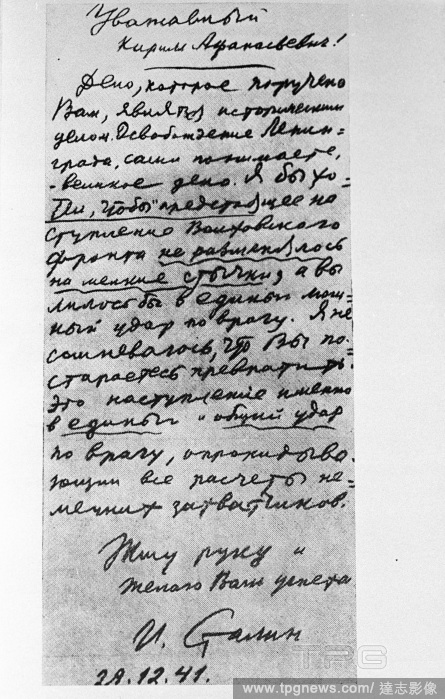 Уважаемый
Кирилл Афанасьевич!
Дело, которое поручено
Вам, является историческим
делом. Освобождение Ленин=
града, сами понимаете,
- великое дело. Я бы хо=
тел, чтобы предстоящее на
ступление Волховского
фронта не разменялось
на мелкие стычки, а вы
лилось бы в единый мощ=
ный удар по врагу. Я не
сомневаюсь, что Вы по=
стараетесь превратить
это наступление именно
в единый и общий удар
по врагу, опрокидыва=
ющий все расчеты не=
мецких захватчиков.
Жму руку и
желаю Вам успеха
И. Сталин
29.12.41.
TPG
www.tpgnews.com/達志影像